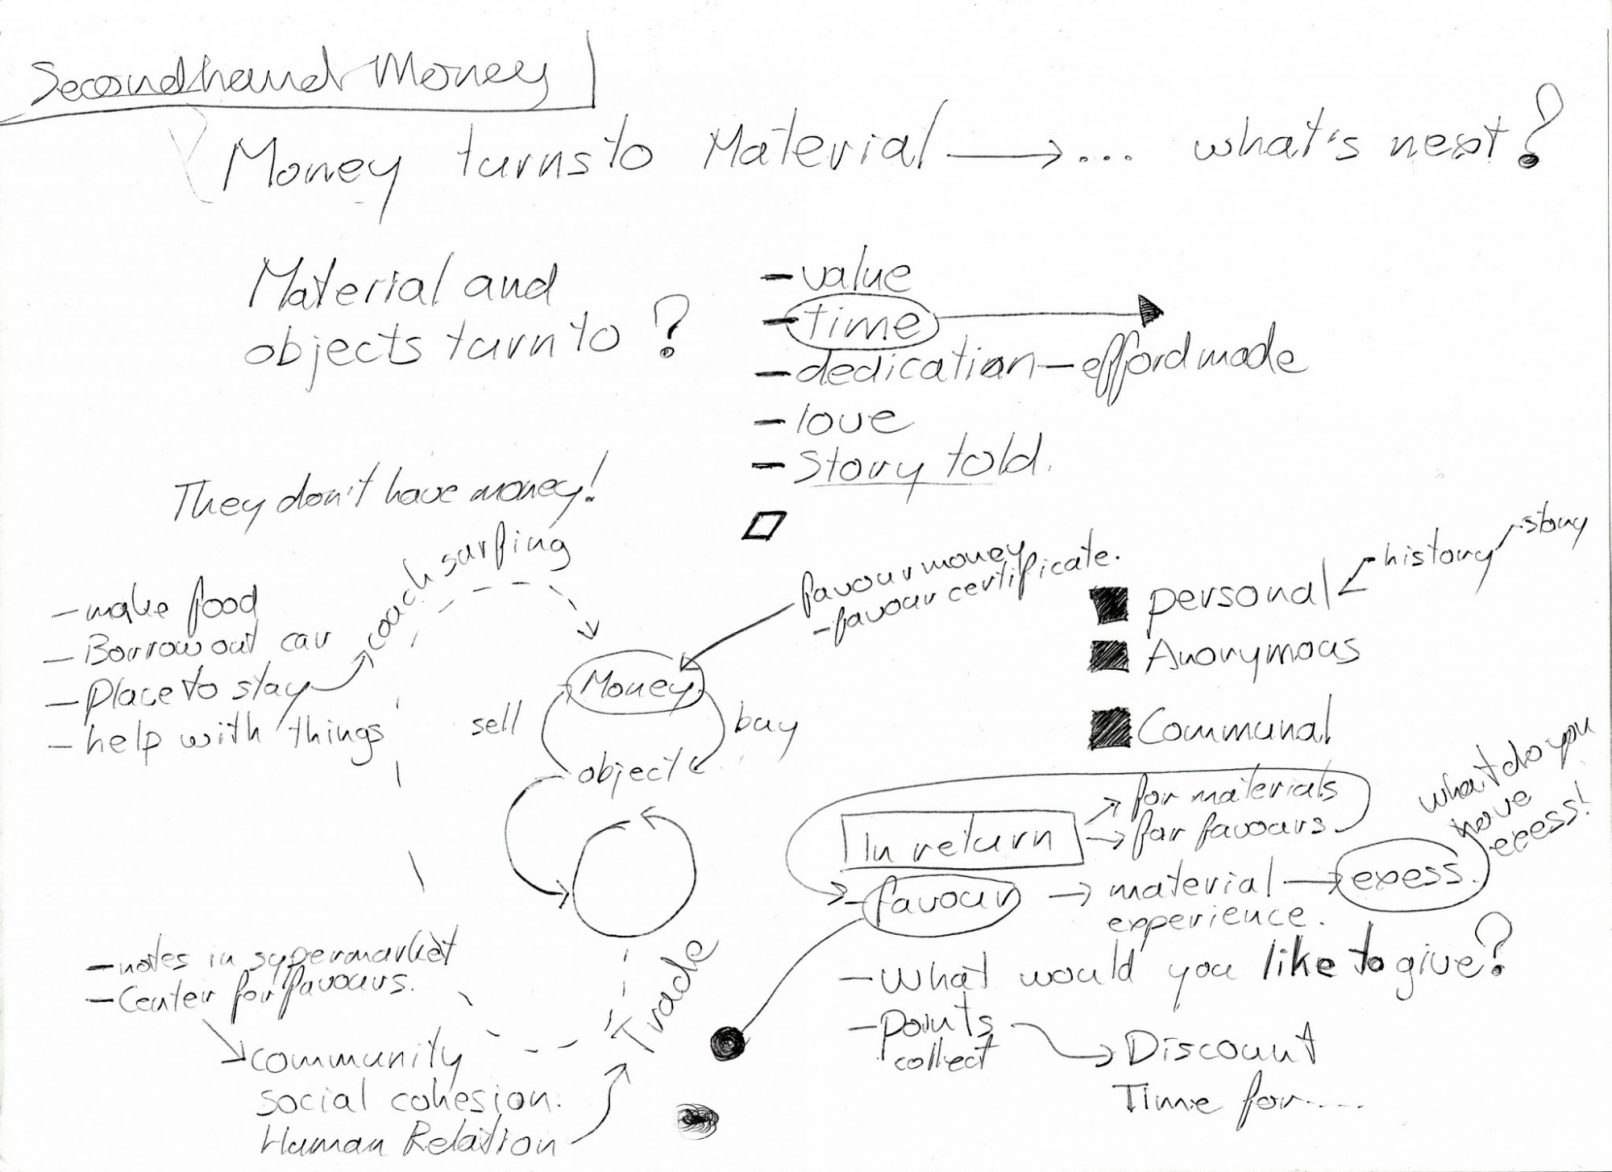 Secondhand Money
Money turns to Material → ... what's next?
Material and
objects turn to ?
- value
- time
- dedication - effordmade
- love
- Story told.
They don't have money!
coach surfing
- make food
- Borrow out car
- Place to stay
- help with things
favour money
- favour certificate.
Money
sell
buy
object
story
history
personal
Anonymous
Communal
what do you
have
exess!
In return
→ for materials
→ for favours
- favour → material → exess.
experience.
- What would you like to give?
- points
collect
→ Discount
Time for....
- notes in supermarket
- Center for favours.
community
social cohesion.
Human Relation
Trade